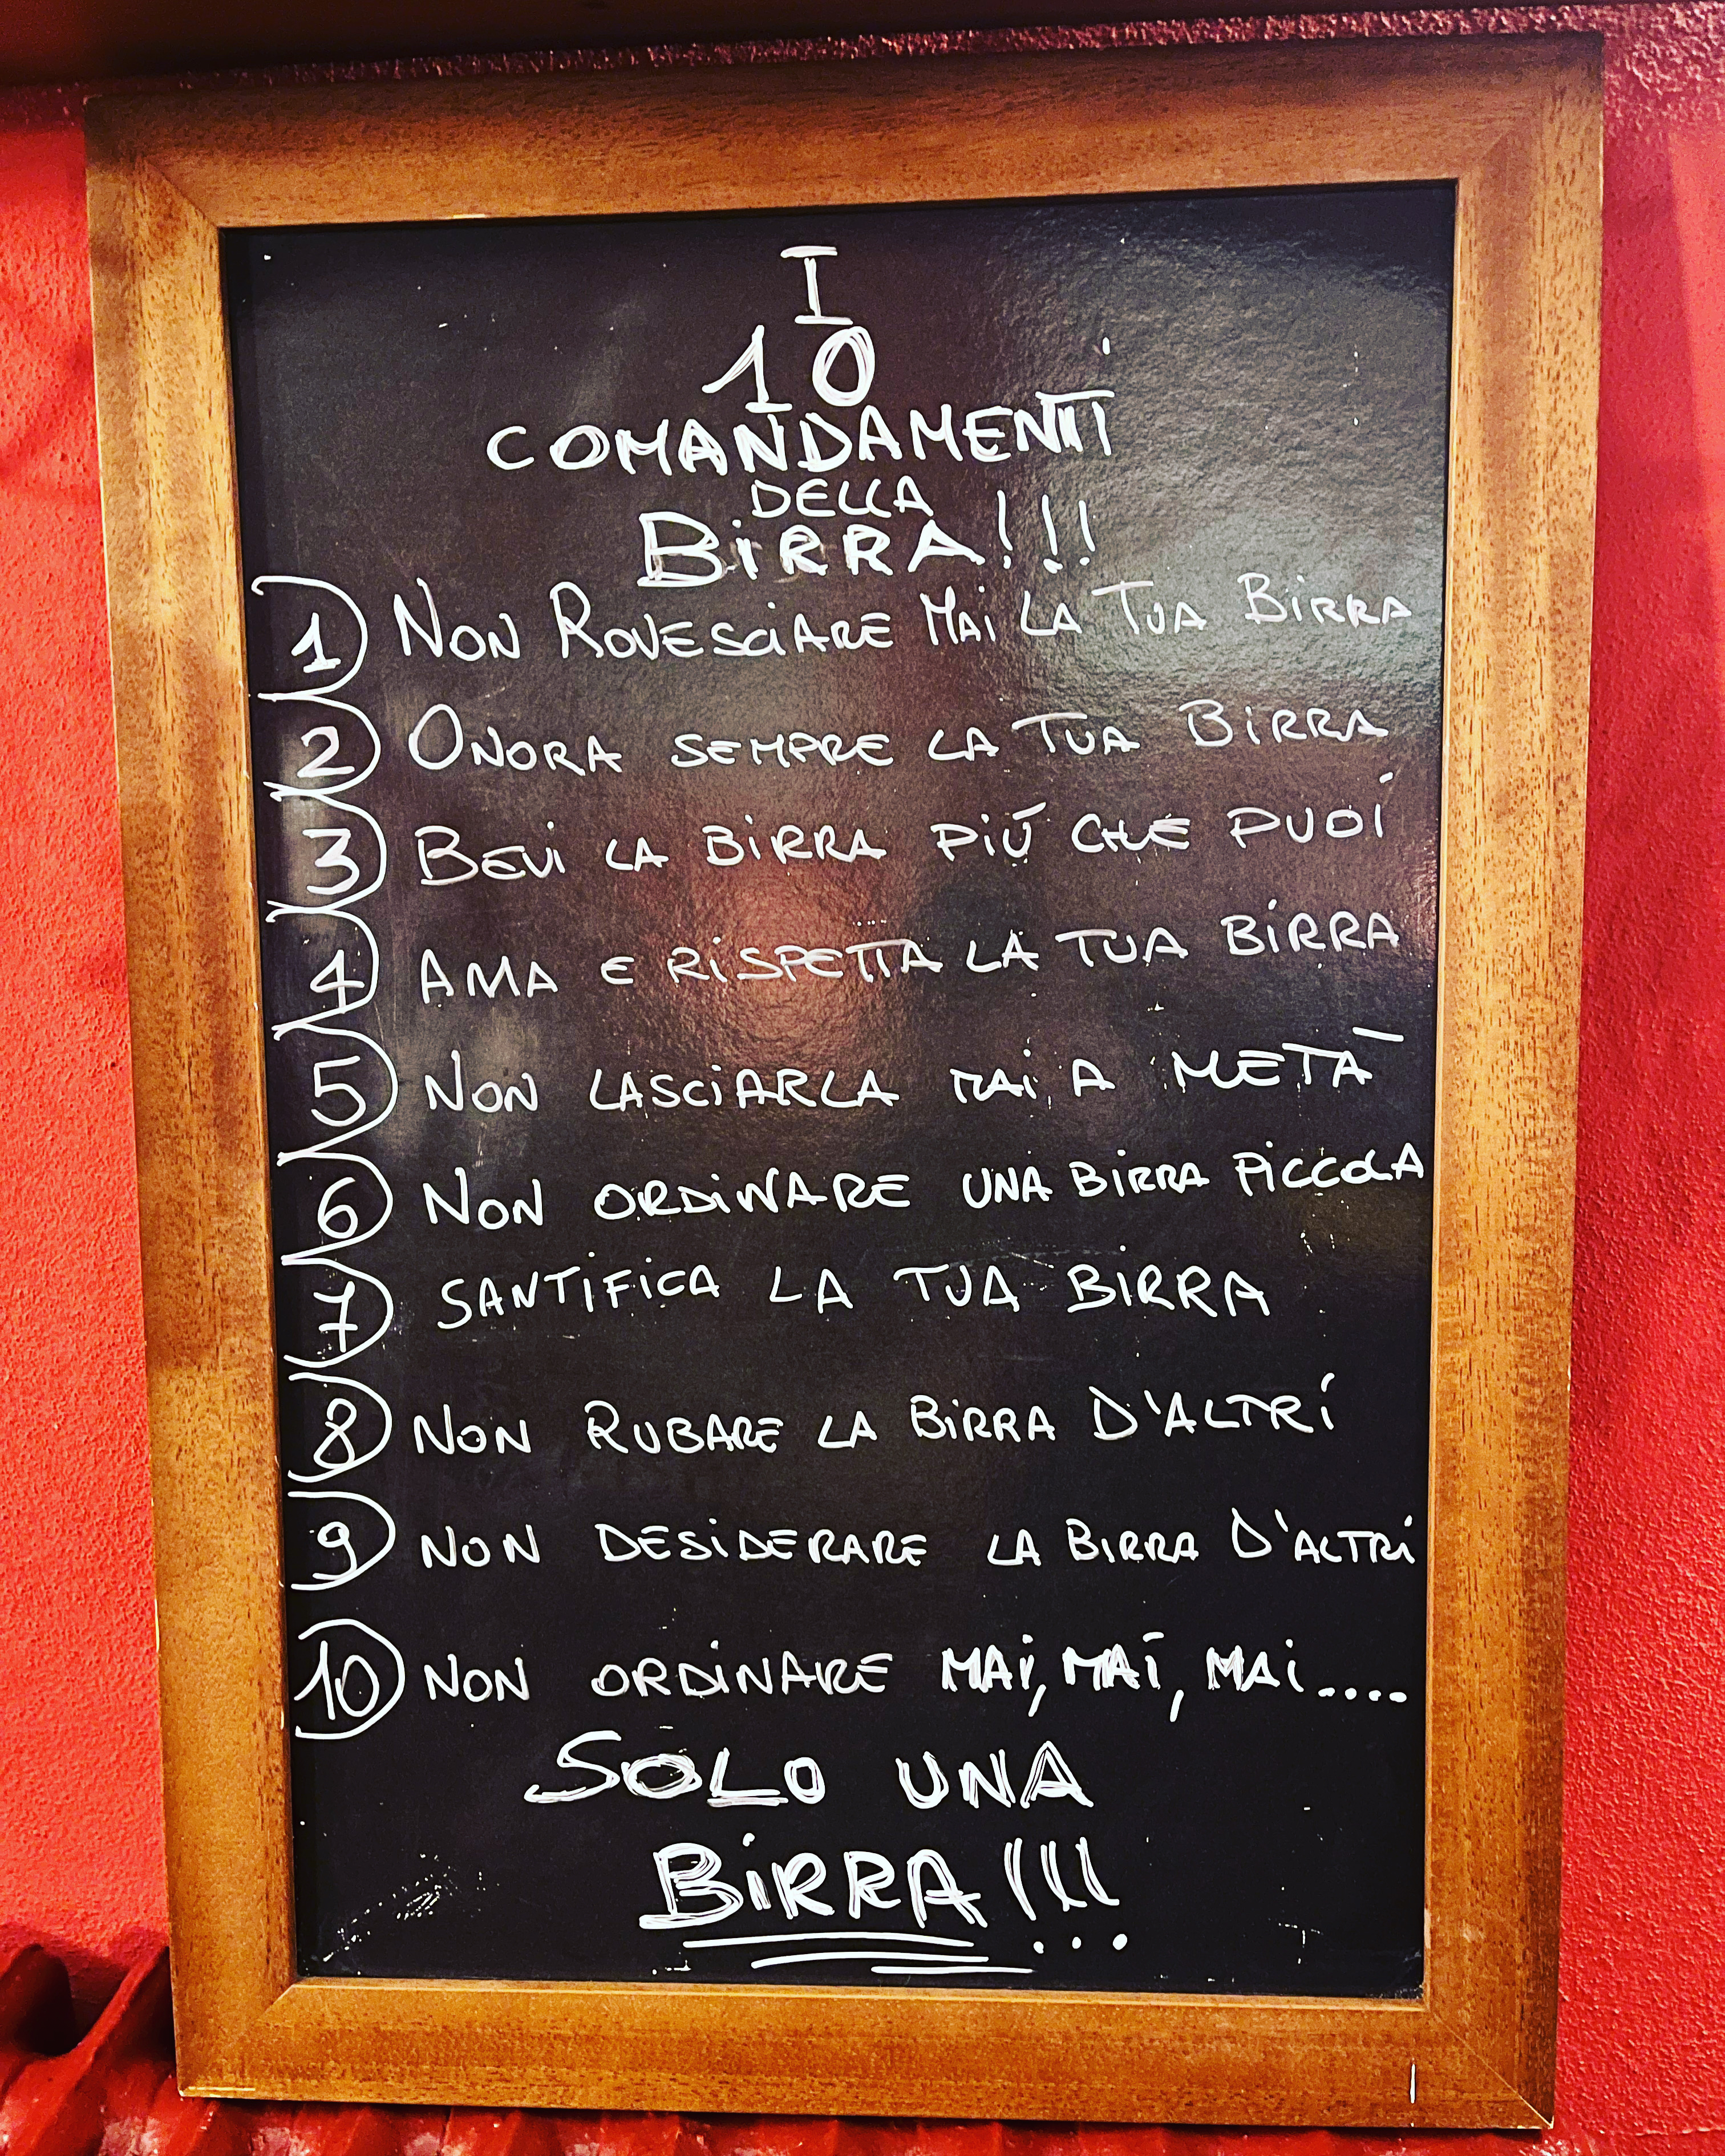 I
10
COMANDAMENTI
DELLA
BiRRA!!!
1) NON ROVESCIARE MAi LA TUA BiRRA
2) ONORA SEMPRE LA TUA BiRRA
3) BEVI LA BiRRA PIÚ CHE PUOI
4) AMA E RiSPETTA LA TUA BiRRA
5) NON LASCiARLA MAi A METÀ
6) NON ORDiNARE UNA BiRRA PiCCOLA
7) SANTiFiCA LA TUA BiRRA
8) NON RUBARE LA BiRRA D'ALTRi
9) NON DESiDERARE LA BiRRA D'ALTRi
10) NON ORDiNARE MAi, MAi, MAi....
SOLO UNA
BiRRA!!!